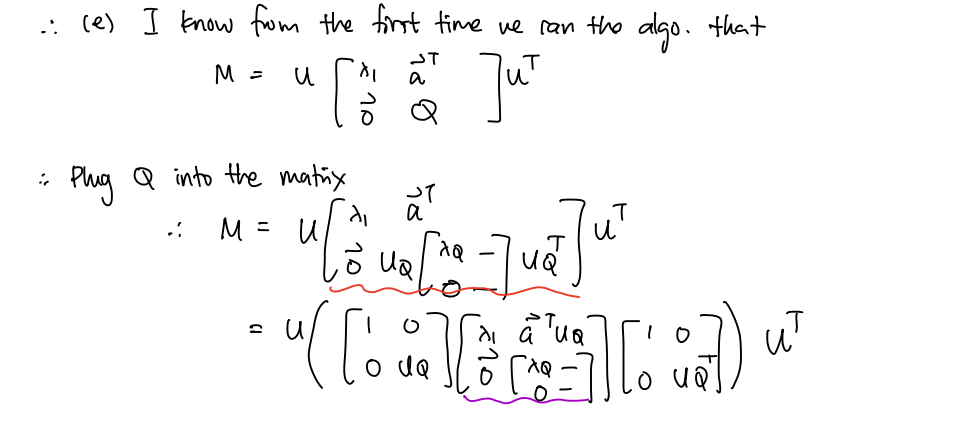 ∴ (e) I know from the first time we ran the algo. that
M = U [ λ₁ a⃗ᵀ ; 0⃗ Q ] Uᵀ
∴ Plug Q into the matrix
∴ M = U [ λ₁ a⃗ᵀ ; 0⃗ U_Q [ λ_Q – ; 0 – ] U_Qᵀ ] Uᵀ
= U ( [ 1 0 ; 0 U_Q ] [ λ₁ a⃗ᵀU_Q ; 0⃗ [ λ_Q – ; 0 – ] ] [ 1 0 ; 0 U_Qᵀ ] ) Uᵀ